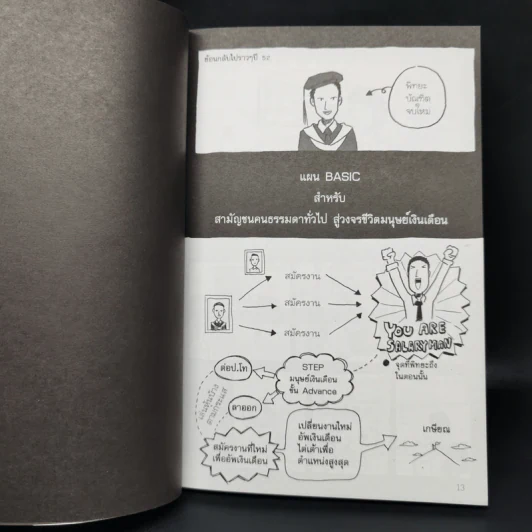 ย้อนกลับไปราวๆปี 52
พิทยะ
บัณฑิต
จบใหม่
แผน BASIC
สำหรับ
สามัญชนคนธรรมดาทั่วไป สู่วงจรชีวิตมนุษย์เงินเดือน
สมัครงาน
สมัครงาน
สมัครงาน
YOU ARE
SALARYMAN
จุดที่พิทยะถึง
ในตอนนั้น
STEP
มนุษย์เงินเดือน
ขั้น Advance
ต่อป.โท
ลาออก
เล่นหุ้นบ้าง
ตามกระแส
สมัครงานที่ใหม่
เพื่ออัพเงินเดือน
เปลี่ยนงานใหม่
อัพเงินเดือน
ไต่เต้าเพื่อ
ตำแหน่งสูงสุด
เกษียณ
13